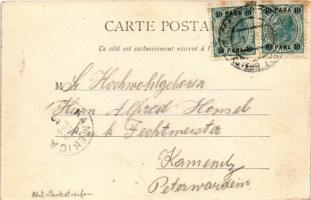 CARTE POSTALE
Ce côté est exclusivement réservé à l'
10 PARA 10 10 PARA 10
M Sr Hochwohlgeboren
Herrn Alfred Hensel
k u k Fechtmeister
KAMENICA
Kamenitz
Peterwardein